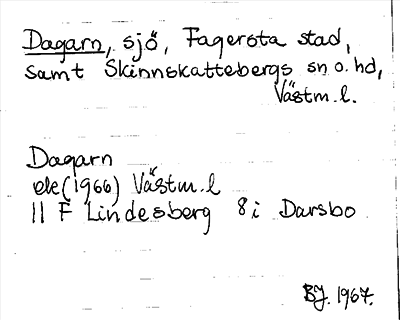 Dagarn, sjö, Fagersta stad,
samt Skinnskattebergs sn o. hd,
Västm. l.
Dagarn
ek (1966) Västm. l
11 F Lindesberg 8 i Darsbo
BJ. 1967.